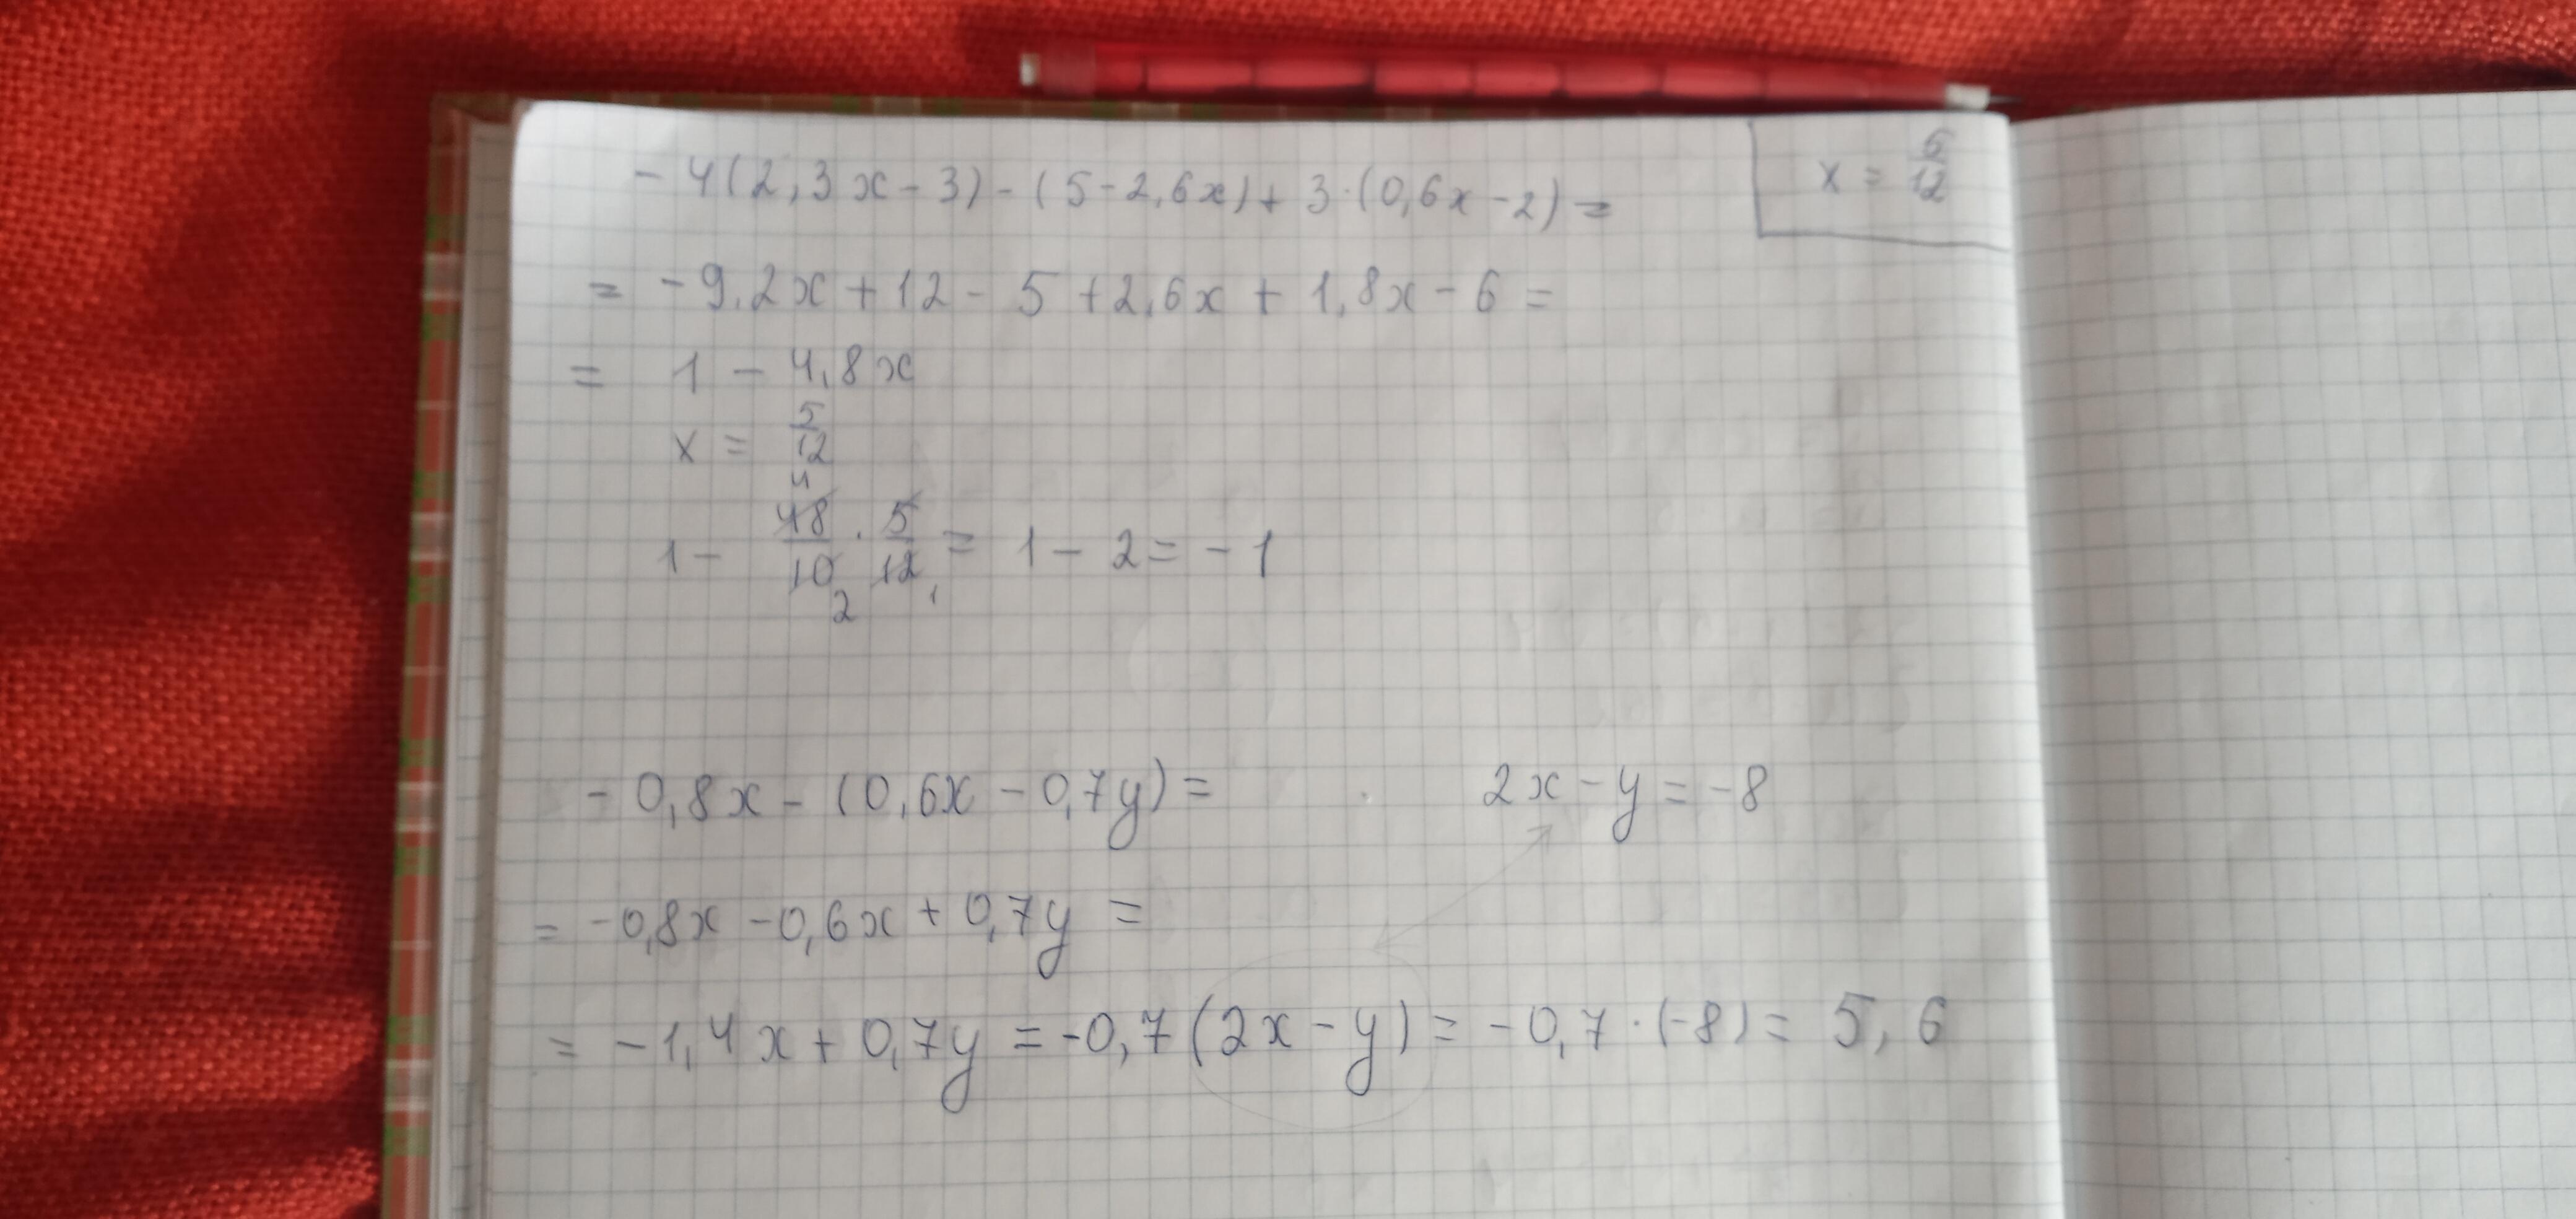 - 4(2,3x - 3) - (5 - 2,6x) + 3·(0,6x - 2) =
x = 5/12
= - 9,2x + 12 - 5 + 2,6x + 1,8x - 6 =
= 1 - 4,8x
x = 5/12
4
1 - 48/10 · 5/12 = 1 - 2 = - 1
2 1
- 0,8x - (0,6x - 0,7y) = 2x - y = -8
= -0,8x - 0,6x + 0,7y =
= - 1,4x + 0,7y = -0,7(2x - y) = - 0,7·(-8) = 5,6